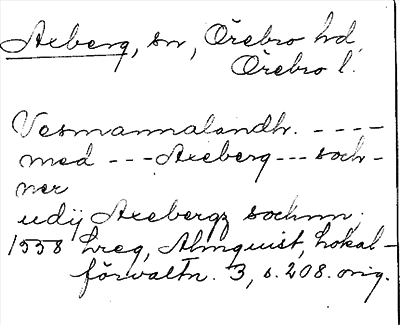 Axberg, sn, Örebro hd,
Örebro l.
Vesmannalandh. ----
med --- Axeberg --- soch-
ner
udij Axebergz sochnn,
1558 Lreg, Almquist, Lokal-
förvaltn. 3, s. 208. orig.